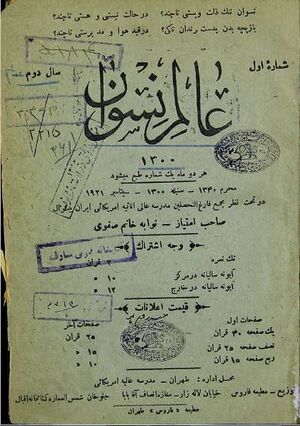 نسوان تنك ذلت وپستی تاچند؟ درحالت نیستی و هستی تاچند؟
بازیچه بدن بدست رندان تاکی؟ درقید هوا و مد پرستی تاچند؟
شمارهٔ اول
سال دوم
عالم نسوان
۱۳۰۰
هر دو ماه یك شماره طبع میشود
محرم ۱۳۴۰ — سنبله ۱۳۰۰ — سپتامبر ۱۹۲۱
در تحت نظر مجمع فارغ التحصیلین مدرسه عالی اناثیه امریکائی ایران
صاحب امتیاز — نوابه خانم صفوی
وجه اشتراك
تك نمره ۲ قران
آبونه سالیانه درمرکز ۱۰ »
آبونه سالیانه در خارج ۱۲ »
قیمت اعلانات
صفحات اول
صفحات آخر
یك صفحه ۳۰ قران
۲۵ قران
نصف صفحه ۲۵
۱۵ »
ربع صفحه ۱۵
۱۰ »
محل اداره : طهران — مدرسه عالیه امریکائی
توزیع — مطبعه فاروس خیابان لاله زار — مغازه انصاف آقا بابا جلوخان شمس العماره کتابخانه اقبال
مطبعه « فاروس » طهران